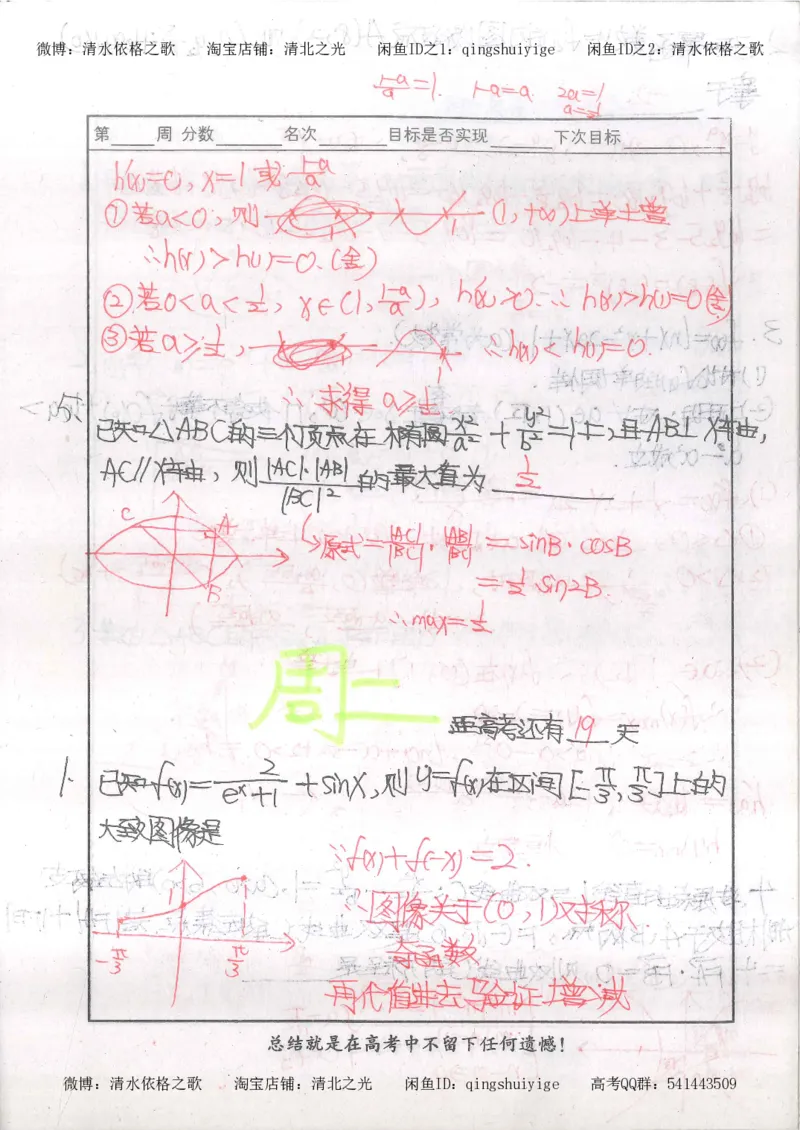 微博：清水依格之歌 淘宝店铺：清北之光 闲鱼ID之1：qingshuiyige 闲鱼ID之2：清水依格之歌
(1-a)/a=1. 1-a=a. 2a=1
a=1/2
第____周 分数____ 名次____目标是否实现____ 下次目标____
h'(x)=0, x=1 或 (1-a)/a
①若a<0, 则 (1,+∞)上单增
∴h(x)>h(1)=0.(舍)
②若0<a<1/2, x∈(1,(1-a)/a), h'(x)>0.∴h(x)>h(1)=0(舍)
③若a≥1/2, ∴h(x)<h(1)=0.
∴求得 a≥1/2
5. 已知△ABC的三个顶点在椭圆x²/a²+y²/b²=1上,且AB⊥X轴,
AC//X轴, 则 |AC|·|AB|/|BC|² 的最大值为 1/2
C A B
原式=|AC|/|BC|·|AB|/|BC|=sinB·cosB
=1/2 sin2B.
∴max=1/2
周二
距高考还有19天
1. 已知f(x)=2/(eˣ+1)+sinx,则y=f(x)在区间[-π/3,π/3]上的
大致图像是
∵f(x)+f(-x)=2.
∴图像关于(0,1)对称
奇函数
再代值进去验证增减
1
-π/3 π/3
总结就是在高考中不留下任何遗憾！
微博：清水依格之歌 淘宝店铺：清北之光 闲鱼ID：qingshuiyige 高考QQ群：541443509